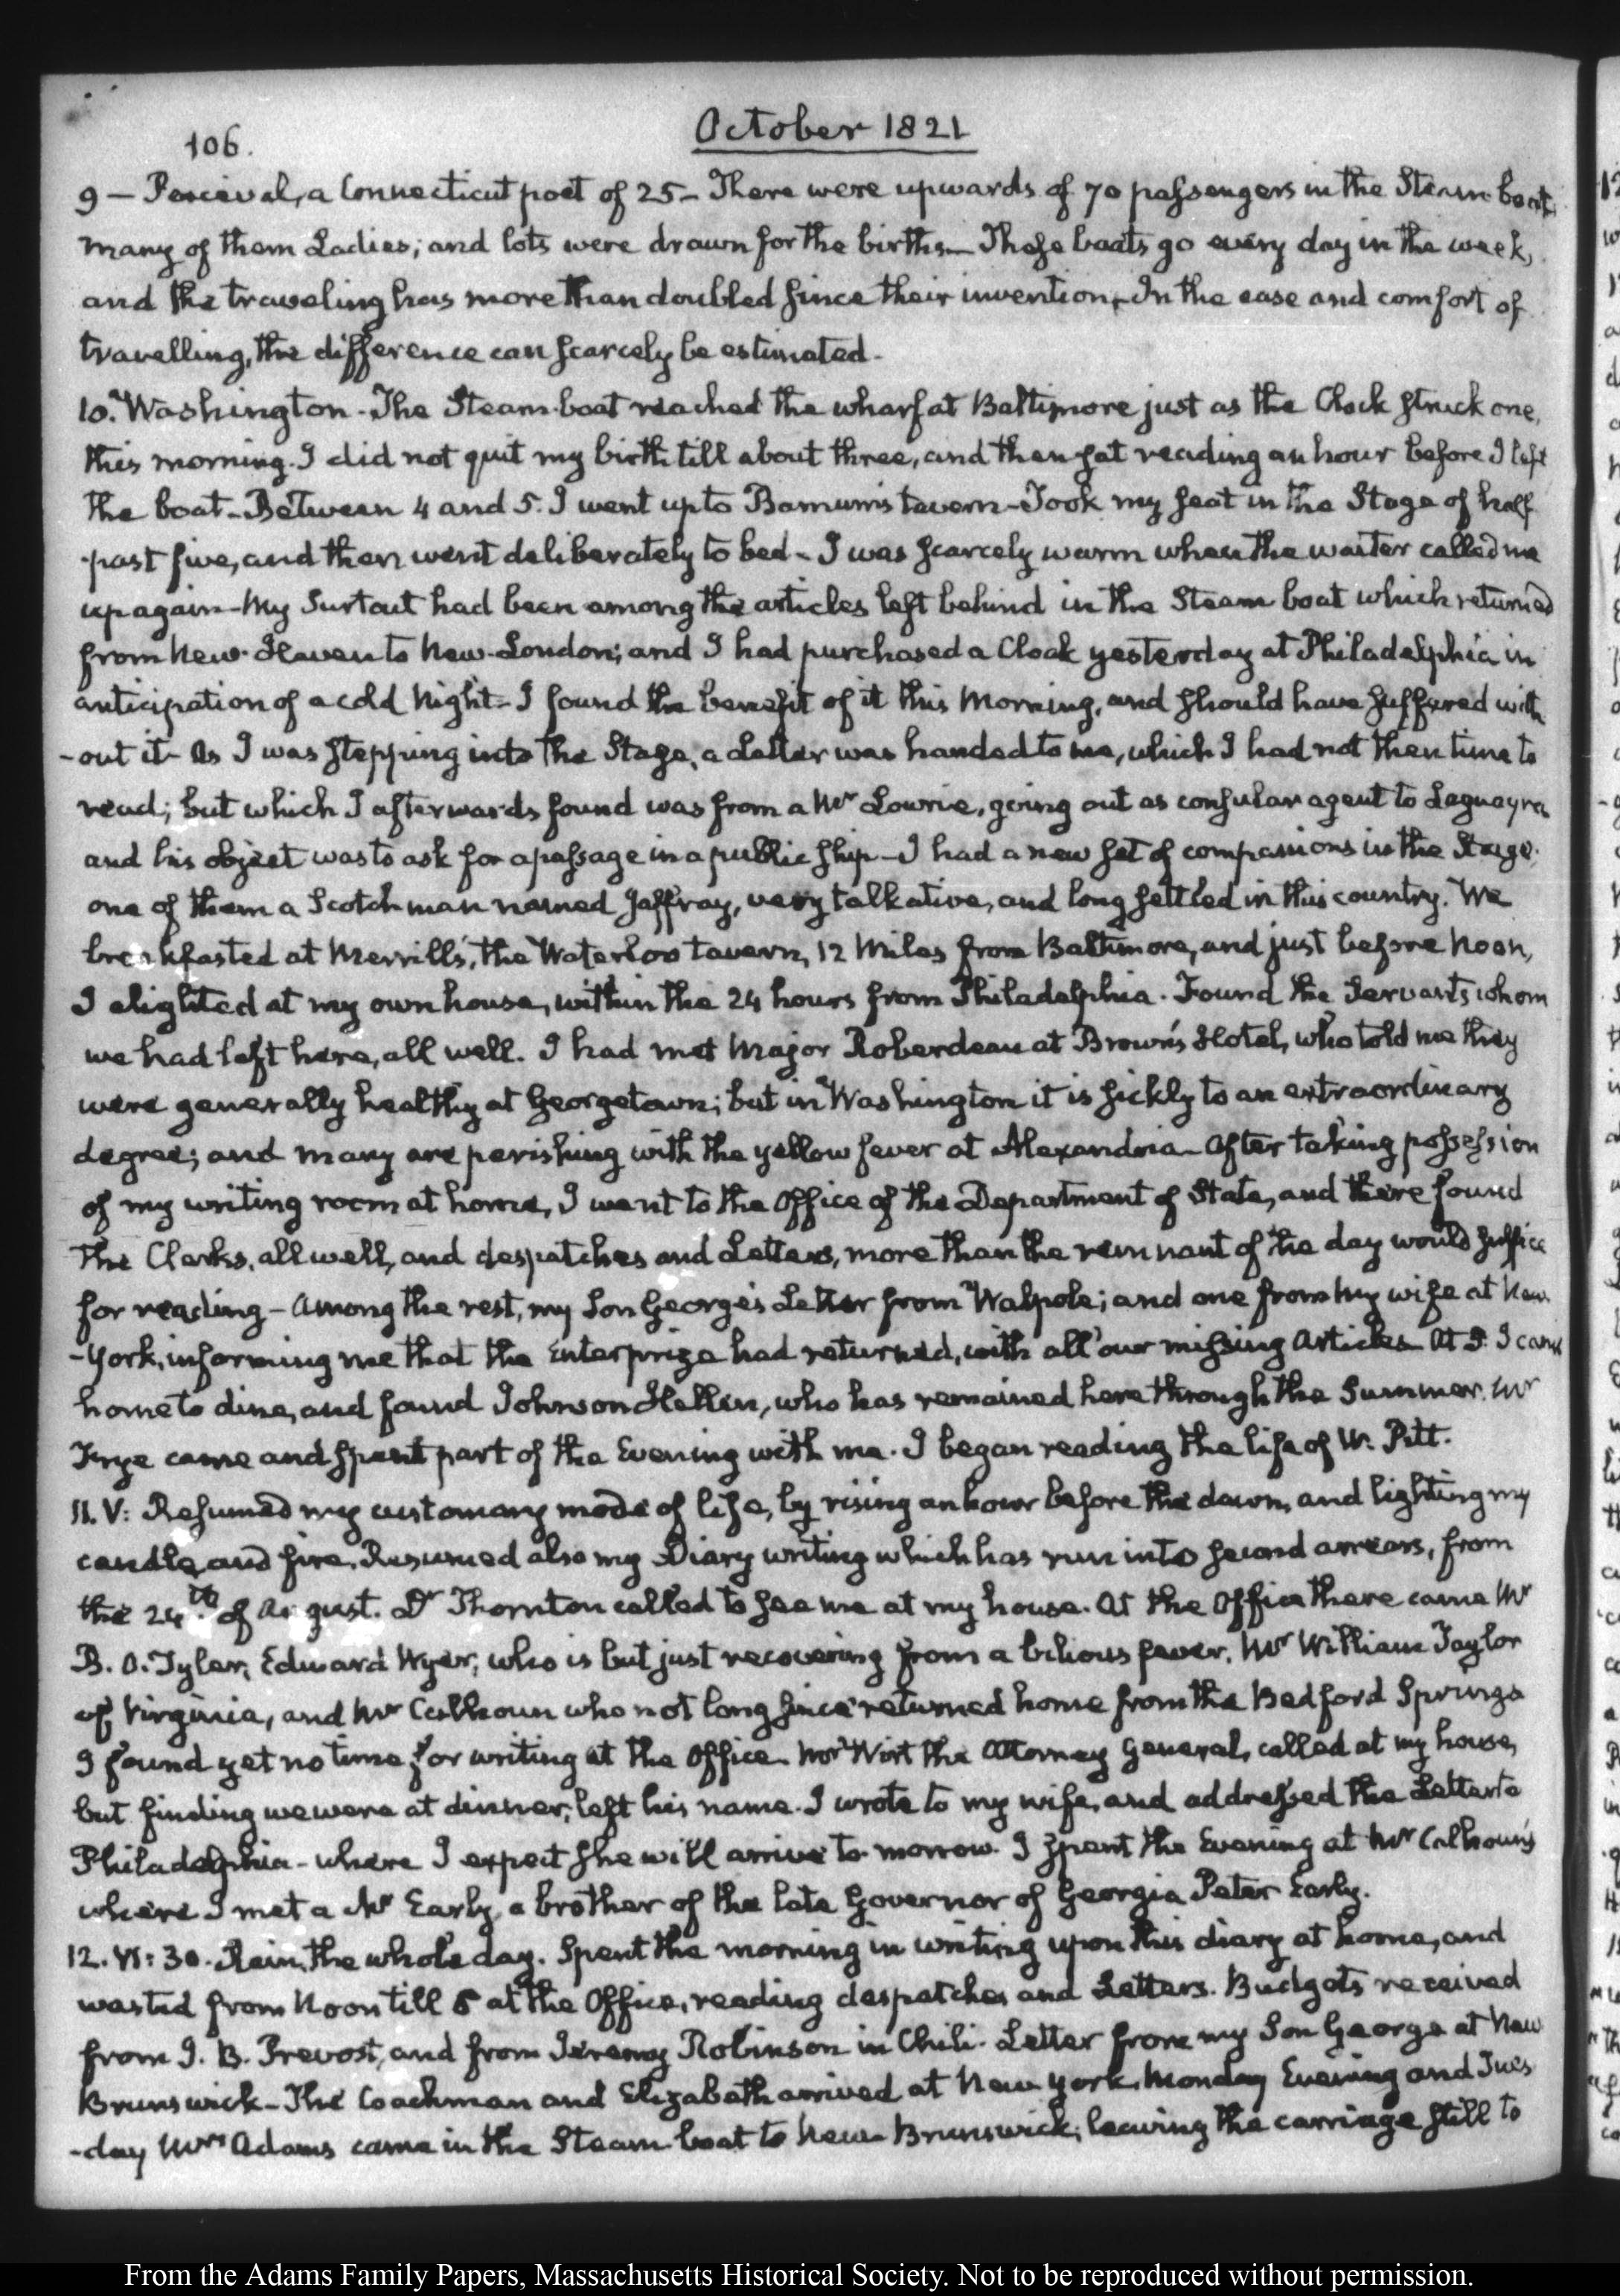 106.
October 1821
9 – Percival, a Connecticut poet of 25 – There were upwards of 70 passengers in the Steam-boat;
many of them Ladies; and lots were drawn for the births – These boats go every day in the week,
and the traveling has more than doubled since their invention – In the ease and comfort of
travelling, the difference can scarcely be estimated –
10. Washington – The Steam-boat reached the wharf at Baltimore just as the Clock struck one,
this morning. I did not quit my birth till about three, and then sat reading an hour before I left
the boat – Between 4 and 5. I went up to Barnum's tavern – Took my seat in the Stage of half
past five, and then went deliberately to bed – I was scarcely warm when the waiter called me
up again – My Surtout had been among the articles left behind in the Steam boat which returned
from New-Haven to New-London; and I had purchased a Cloak yesterday at Philadelphia in
anticipation of a cold Night – I found the benefit of it this Morning, and should have suffered with
-out it – As I was stepping into the Stage, a Letter was handed to me, which I had not then time to
read; but which I afterwards found was from a Mr Lowrie, going out as consular agent to Laguayra
and his object was to ask for a passage in a public ship – I had a new set of companions in the Stage;
one of them a Scotchman named Jaffray, very talkative, and long settled in this country. We
breakfasted at Merrill's, the Waterloo tavern, 12 Miles from Baltimore, and just before Noon,
I alighted at my own house, within the 24 hours from Philadelphia. Found the Servants whom
we had left here, all well. I had met Major Roberdeau at Brown's Hotel, who told me they
were generally healthy at Georgetown; but in Washington it is sickly to an extraordinary
degree; and many are perishing with the yellow fever at Alexandria – After taking possession
of my writing room at home, I went to the Office of the Department of State, and there found
the Clerks, all well, and despatches and Letters, more than the remnant of the day would suffice
for reading – Among the rest, my Son George's Letter from Walpole; and one from my wife at New-
-York, informing me that the Enterprize had returned, with all our missing Articles – At 5. I came
home to dine, and found Johnson Hellen, who has remained here through the Summer. Mr
Frye came and spent part of the Evening with me. I began reading the life of W. Pitt.
11. V: Resumed my customary mode of life, by rising an hour before the dawn, and lighting my
candle and fire. Resumed also my Diary writing which has run into second arrears, from
the 24th. of August. Dr Thornton called to see me at my house. At the Office there came Mr
B. O. Tyler, Edward Wyer, who is but just recovering from a bilious fever, Mr William Taylor
of Virginia, and Mr Calhoun who not long since returned home from the Bedford Springs
I found yet no time for writing at the Office – Mr Wirt the Attorney General, called at my house,
but finding we were at dinner, left his name. I wrote to my wife, and addressed the Letter to
Philadelphia – where I expect she will arrive to-morrow. I spent the Evening at Mr Calhoun's
where I met a Mr Early, a brother of the late Governor of Georgia Peter Early.
12. VI: 30. Rain, the whole day. Spent the morning in writing upon this diary at home, and
wasted from Noon till 5 at the Office, reading despatches and Letters. Budgets received
from J. B. Prevost, and from Jeremy Robinson in Chili. Letter from my Son George at New
Brunswick – The Coachman and Elizabeth arrived at New-York, Monday Evening and Tues
-day Mrs Adams came in the Steam-boat to New-Brunswick; leaving the carriage still to
From the Adams Family Papers, Massachusetts Historical Society. Not to be reproduced without permission.